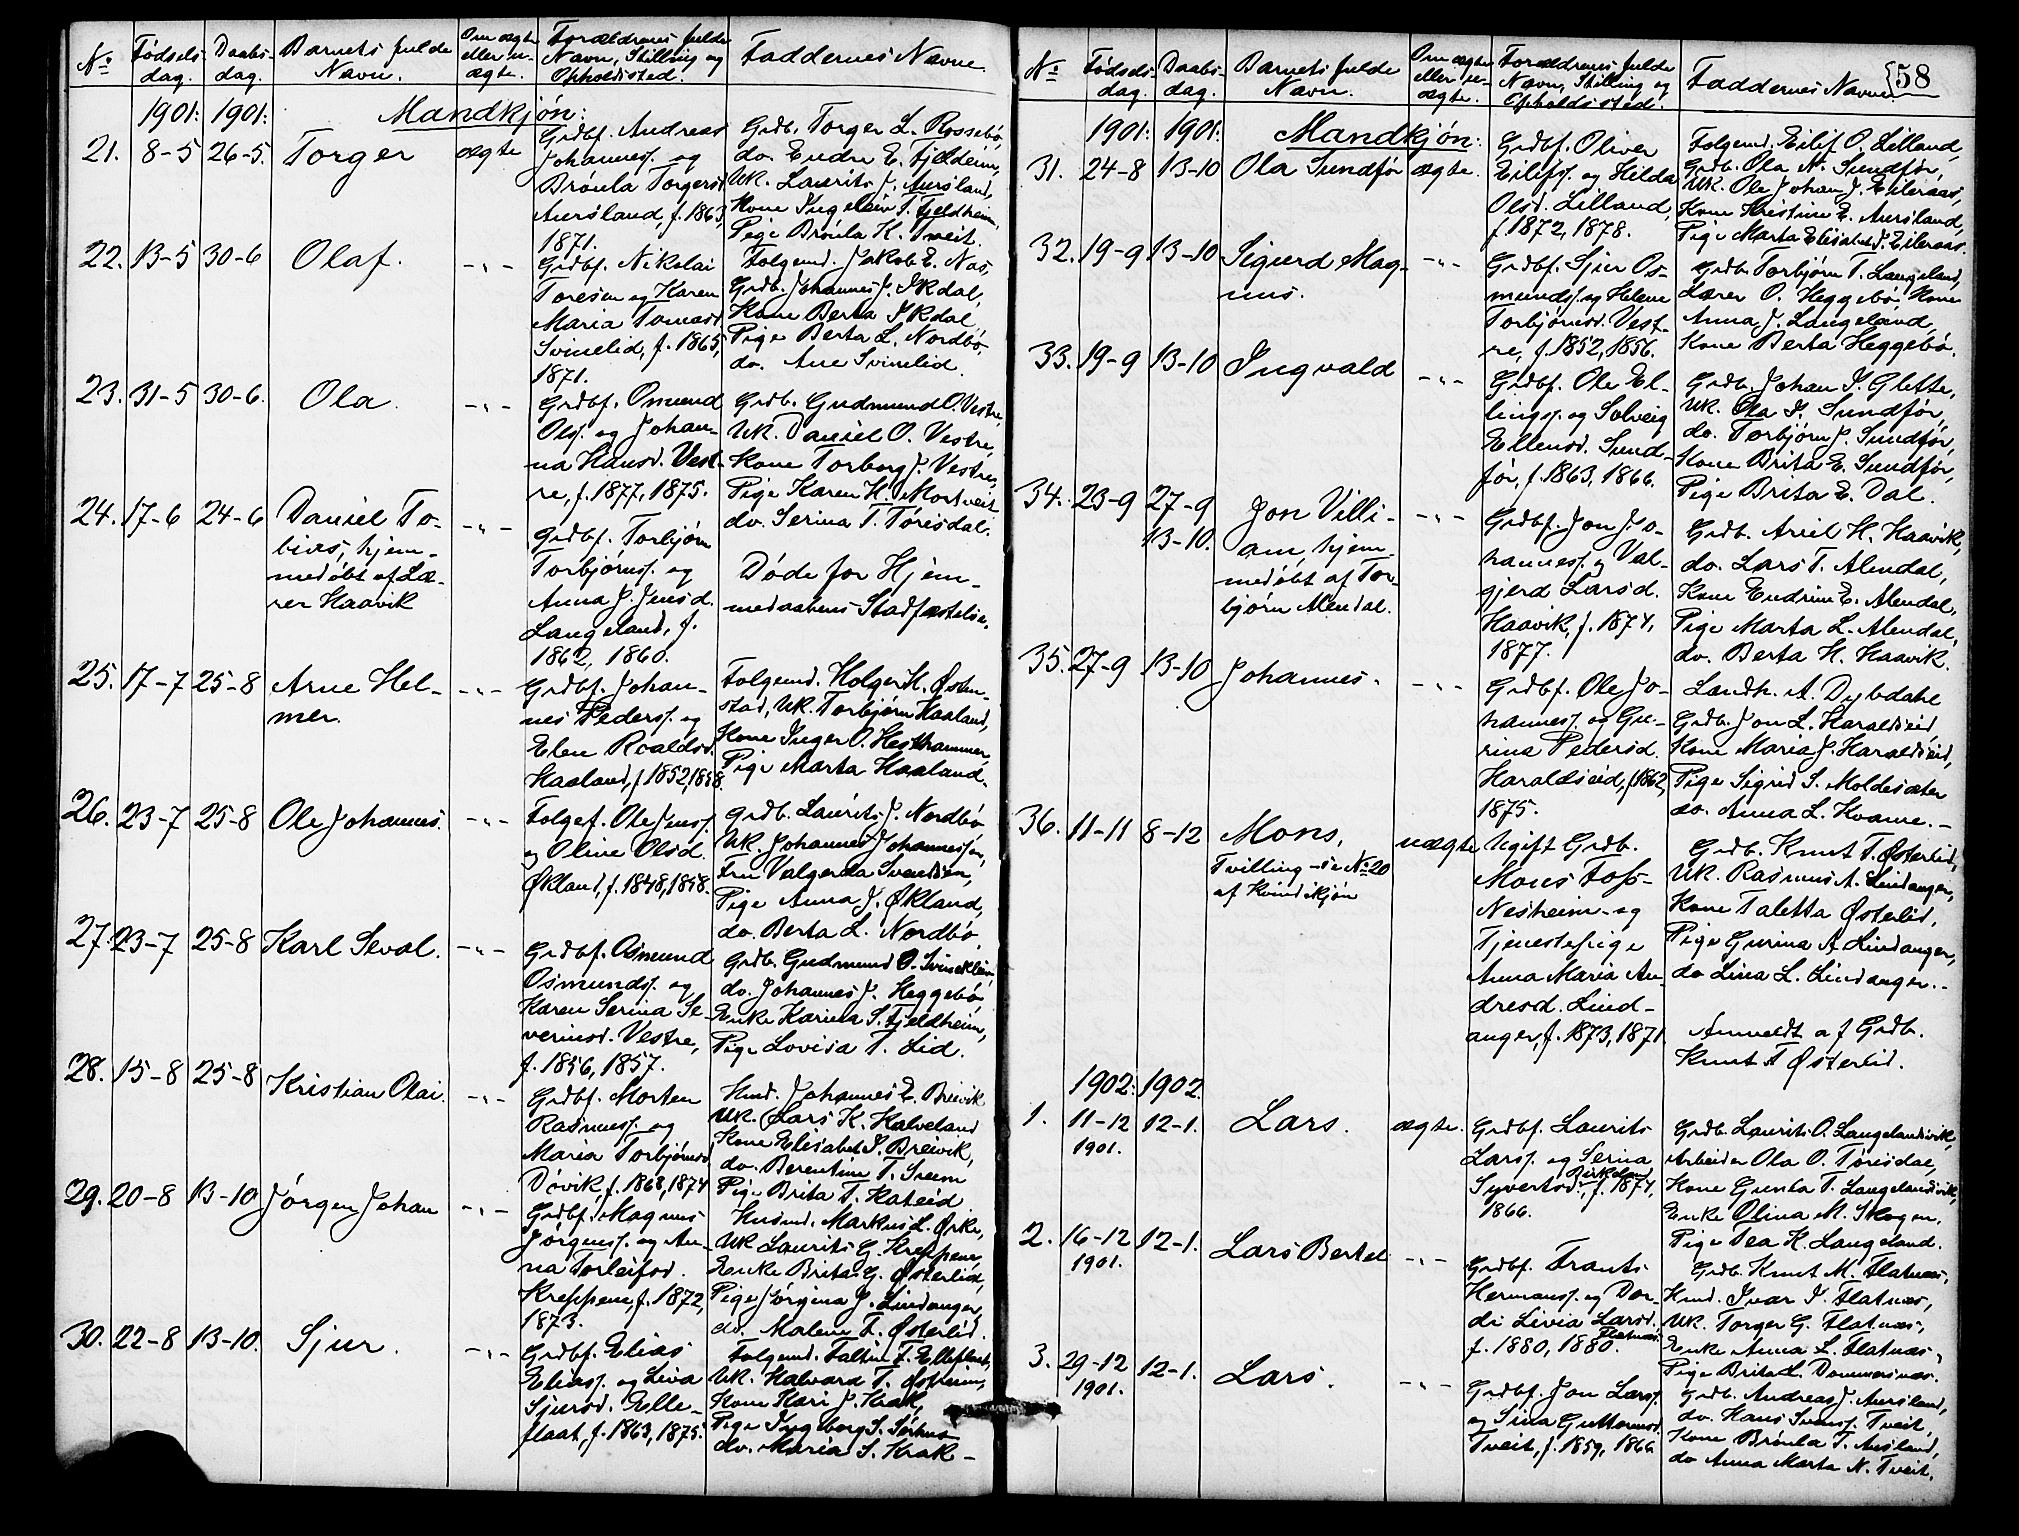 No.
Fødsels-
dag.
Daabs-
dag.
Barnets fulde
Navn.
Om ægte
eller u-
ægte.
Forældrenes fulde
Navn, Stilling og
Opholdssted.
Faddernes Navne.
1901: 1901: Mandkjøn:
21. 8-5 26-5. Torger ægte
Grdbf. Andreas
Johanness. og
Brónla Torgersd.
Aursland, f. 1863,
1871.
Grdb. Torger L. Rossebø,
do. Endre E. Fjeldheim,
Uk. Laurits J. Aursland,
Kone Ingeleiv T. Fjeldheim,
Pige Brónla H. Tveit.
22. 13-5 30-6 Olaf. -"-
Grdbf. Nikolai
Toresen og Karen
Maria Tomasd.
Svinelid, f. 1865,
1871.
Folgemd. Jakob E. Nas,
Grdb. Johannes J. Ikdal,
Kone Berta Ikdal
Pige Berta L. Nordbø,
do. Ane Svinelid.
23. 31-5 30-6. Ola. -"-
Grdbf. Osmund
Olss. og Johan-
na Hansd. Vest-
re, f. 1877, 1875.
Grdb. Gudmund O. Vestre,
Uk. Daniel O. Vestre,
Kone Torborg J. Vestre,
Pige Karen H. Mortveit
do. Serina T. Tørisdal.
24. 17-6 24-6 Daniel To-
bias, hjem-
medøbt af Læ-
rer Haavik
-"-
Grdbf. Torbjørn
Torbjørnss. og
Anna J. Jensd.
Langeland, f.
1862, 1860.
Døde før Hjem-
medaabens Stadfæstelse.
25. 17-7 25-8 Arne Hel-
mer.
-"-
Grdbf. Johan-
nes Peders. og
Elen Roaldsd.
Haaland, f. 1852, 1858.
Folgemd. Holger H. Østen-
stad, Uk. Torbjørn Haaland,
Kone Inger O. Hesthammer,
Pige Marta Haaland.
26. 23-7 25-8 Ole Johannes. -"-
Folgef. Ole Jenss.
og Oline Olsd.
Økland, f. 1848, 1858.
Grdb. Laurits J. Nordbø
Uk. Johannes Johannessen,
Fru Valgerda Svendsen,
Pige Anna J. Økland,
do. Berta L. Nordbø
27. 23-7 25-8 Karl Seval. -"-
Grdbf. Osmund
Osmundss. og
Karen Serina Se-
verinsd. Vestre,
f. 1856, 1857.
Grdb. Gudmund O. Svinekleiv,
do. Johannes J. Heggebø
Enke Karina S. Fjeldheim,
Pige Lovisa T. Lid.
28. 15-8 25-8 Kristian Olai. -"-
Grdbf. Morten
Rasmuss. og
Maria Torbjørnsd.
Døvik, f. 1868, 1874
Hmd. Johannes E. Breivik
Uk. Lars K. Halveland
Kone Elisabet S. Breivik,
do. Berentine T. Sveen
Pige Brita T. Hateid
29. 20-8 13-10 Jörgen Johan -"-
Grdbf. Magnus
Jörgenss. og An-
na Torleifsd.
Kreppene, f. 1872,
1873.
Husmd. Markus L. Ørke,
Uk Laurits G. Kreppene,
Enke Brita G. Østerlid,
Pige Jörgina J. Lindanger,
do. Malene T. Østerlid.
30. 22-8 13-10. Sjur. -"-
Grdbf. Elias
Eliass. og Liva
Sjursd. Elle-
flaat, f. 1863, 1875.
Folgemd. Faltin F. Elleflaat,
Uk. Halvard T. Østreim,
Kone Kari J. Krak,
Pige Ingeborg S. Sørhus
do. Maria S. Krak-
58
No.
Fødsels-
dag.
Daabs-
dag.
Barnets fulde
Navn.
Om ægte
eller u-
ægte.
Forældrenes fulde
Navn, Stilling og
Opholdssted.
Faddernes Navne
1901: 1901: Mandkjøn:
31. 24-8 13-10 Ola Sundfør ægte.
Grdbf. Oliver
Eilifs. og Hilda
Olsd. Lilland,
f. 1872, 1878.
Folgemd. Eilif O. Lilland,
Grdb. Ola N. Sundfør,
Uk. Ole Johan J. Eileraas,
Kone Kristine E. Aursland,
Pige Marta Elisabet J. Eileraas
32. 19-9 13-10 Sigurd Mag-
nus.
-"-
Grdbf. Sjur Os-
mundss. og Helene
Torbjørnsd. Vest-
re, f. 1852, 1856.
Grdb. Torbjørn T. Langeland,
Lærer O. Heggebø, Kone
Anna J. Langeland,
Kone Berta Heggebø.
33. 19-9 13-10 Ingvald -"-
Grdbf. Ole El-
lings. og Solveig
Ellensd. Sund-
før, f. 1863, 1866.
Grdb. Johan I. Glette,
Uk. Ola I. Sundfør,
do. Torbjørn J. Sundfør,
Kone Brita E. Sundfør,
Pige Brita E. Dal.
34. 23-9 27-9
13-10.
Jon Villi-
am, hjem-
medøbt af Tor-
bjørn Alendal.
-"-
Grdbf. Jon Jo-
hanness. og Val-
gjerd Larsd.
Haavik, f. 1874,
1877.
Grdb. Aviel H. Haavik,
do. Lars T. Alendal,
Kone Endrine E. Alendal,
Pige Marta L. Alendal,
do. Berta H. Haavik.
35. 27-9 13-10 Johannes. -"-
Grdbf. Ole Jo-
hanness. og Gu-
rina Pedersd.
Haraldseid, f. 1862,
1875.
Landh. A. Dybdahl
Grdb. Jon L. Haraldseid
Kone Maria J. Haraldseid,
Pige Sigrid S. Moldesæter
do. Anna L. Kvame.-
36. 11-11 8-12 Mons,
Tvilling-se No. 20
af Kvindekjøn
uægte
Ugift Grdb.
Mons Foss-
Nesheim og
Tjenestepige
Anna Maria An-
dresd. Lind-
anger, f. 1873, 1871.
Grdb. Knut T. Østerlid,
Uk. Rasmus A. Lindanger,
Kone Taletta Østerlid,
Pige Gurina A Lindanger,
do Lina L. Lindanger.-
Anmeldt af Grdb.
Knut T Østerlid.
1902: 1902.
1. 11-12
1901.
12-1. Lars. ægte.
Grdbf. Laurits
Larss. og Serina
Syvertsd. Birkeland, f. 1874,
1866.
Grdb. Laurits O. Langelandsvik,
Arbeider Ola O. Tørisdal,
Kone Gunla T. Langelandsvik,
Enke Olina M. Skogen,
Pige Tea K. Langeland.
2. 16-12
1901.
12-1. Lars Bertel -"-
Grdbf. Frants
Hermanss. og Dor-
di Livia Larsd.
Flatnæs.
f. 1880, 1880.
Grdb. Knut M. Flatnæs,
Hmd. Ivar I. Flatnæs,
Uk. Torger G. Flatnæs,
Enke Anna L. Flatnæs,
Pige Brita L. Dommersnæs.
3. 29-12
1901.
12-1. Lars. -"-
Grdbf. Jon Larss.
og Sina Guttormsd.
Tveit, f. 1859, 1866
Grdb. Andreas J. Aursland,
do. Hans Svenss. Tveit,
Kone Brónla T. Aursland,
do Anna Marta N. Tveit.